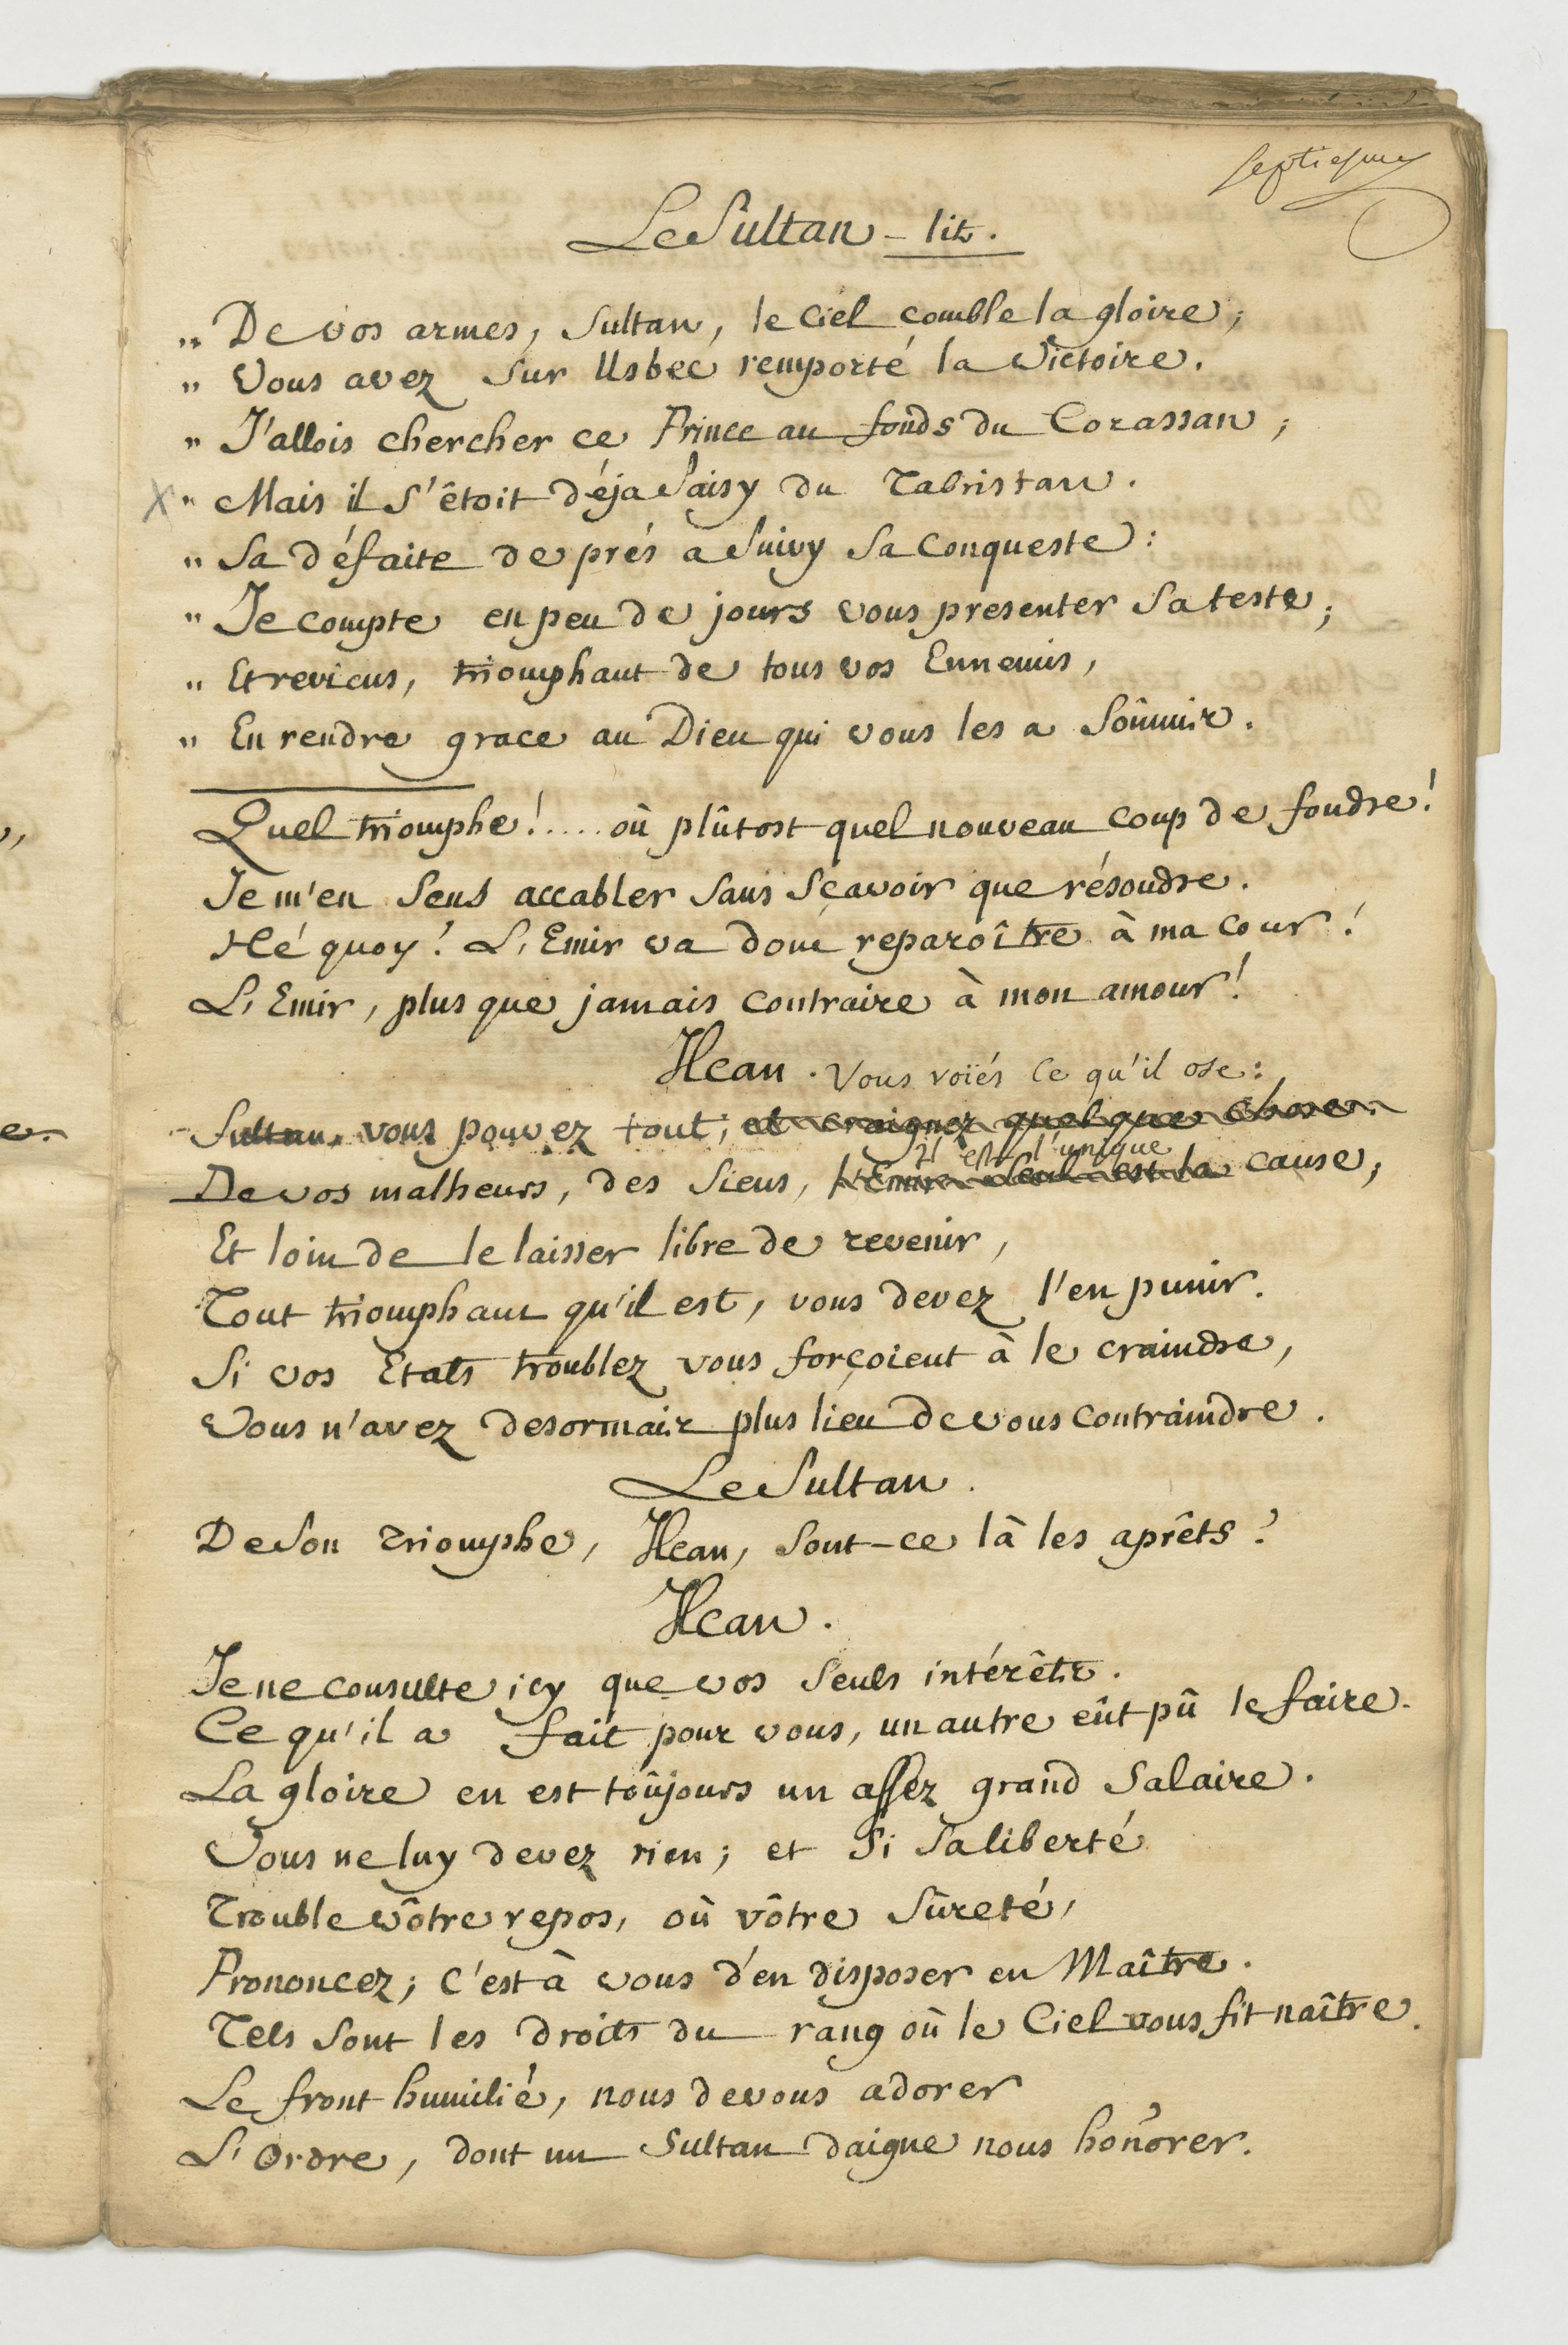 septiesme
Le Sultan - lit.
„ De vos armes, Sultan, le Ciel comble la gloire;
„ Vous avez sur Usbec remporté la Victoire.
„ J'allois chercher ce Prince au fonds du Corassan;
X „ Mais il s'êtoit déja saisy du Tabristan.
„ Sa défaite de prés a suivy sa conqueste:
„ Je compte en peu de jours vous presenter sa teste;
„ Et reviens, triomphant de tous vos Ennemis,
„ En rendre grace au Dieu qui vous les a soûmis.
Quel triomphe!.... où plûtost quel nouveau coup de foudre!
Je m'en sens accabler sans sçavoir que résoudre.
Hé quoy! L'Emir va donc reparoître à ma Cour!
L'Emir, plus que jamais contraire à mon amour!
Hcan. Vous voïés ce qu'il ose:
Sultan, vous pouvez tout; et craignez quelque chose.
il est l'unique
De vos malheurs, des siens, l'Emir seul est la cause;
Et loin de le laisser libre de revenir,
Tout triomphant qu'il est, vous devez l'en punir.
Si vos Etats troublez vous forçoient à le craindre,
Vous n'avez desormais plus lieu de vous contraindre.
Le Sultan.
De son triomphe, Hcan, sont-ce là les aprêts?
Hcan.
Je ne consulte icy que vos seuls intérêts.
Ce qu'il a fait pour vous, un autre eût pû le faire.
La gloire en est toûjours un assez grand salaire.
Vous ne luy devez rien; et si sa liberté
Trouble vôtre repos, où vôtre sûreté,
Prononcez; c'est à vous d'en disposer en Maître.
Tels sont les droits du rang où le Ciel vous fit naître.
Le front humilié, nous devons adorer
L'Ordre, dont un Sultan daigne nous honorer.